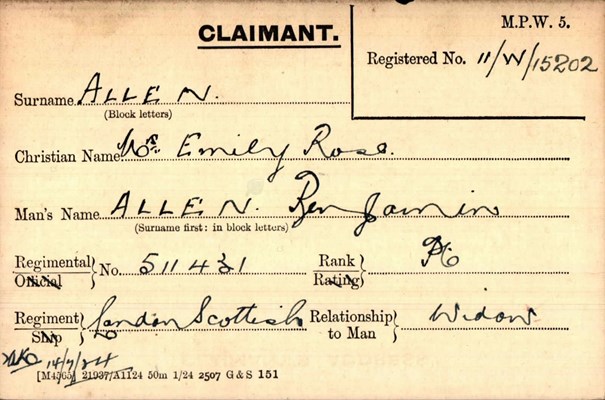 CLAIMANT.
M.P.W. 5.
Registered No. 11/W/15202
Surname ALLEN.
(Block letters)
Christian Name Mrs Emily Rose.
Man's Name ALLEN. Benjamin
(Surname first: in block letters)
Regimental Official } No. 511431 Rank Rating } Pte
Regiment Ship } London Scottish Relationship to Man } Widow
14/7/24
[M4565] 21937/A1124 50m 1/24 2507 G & S 151